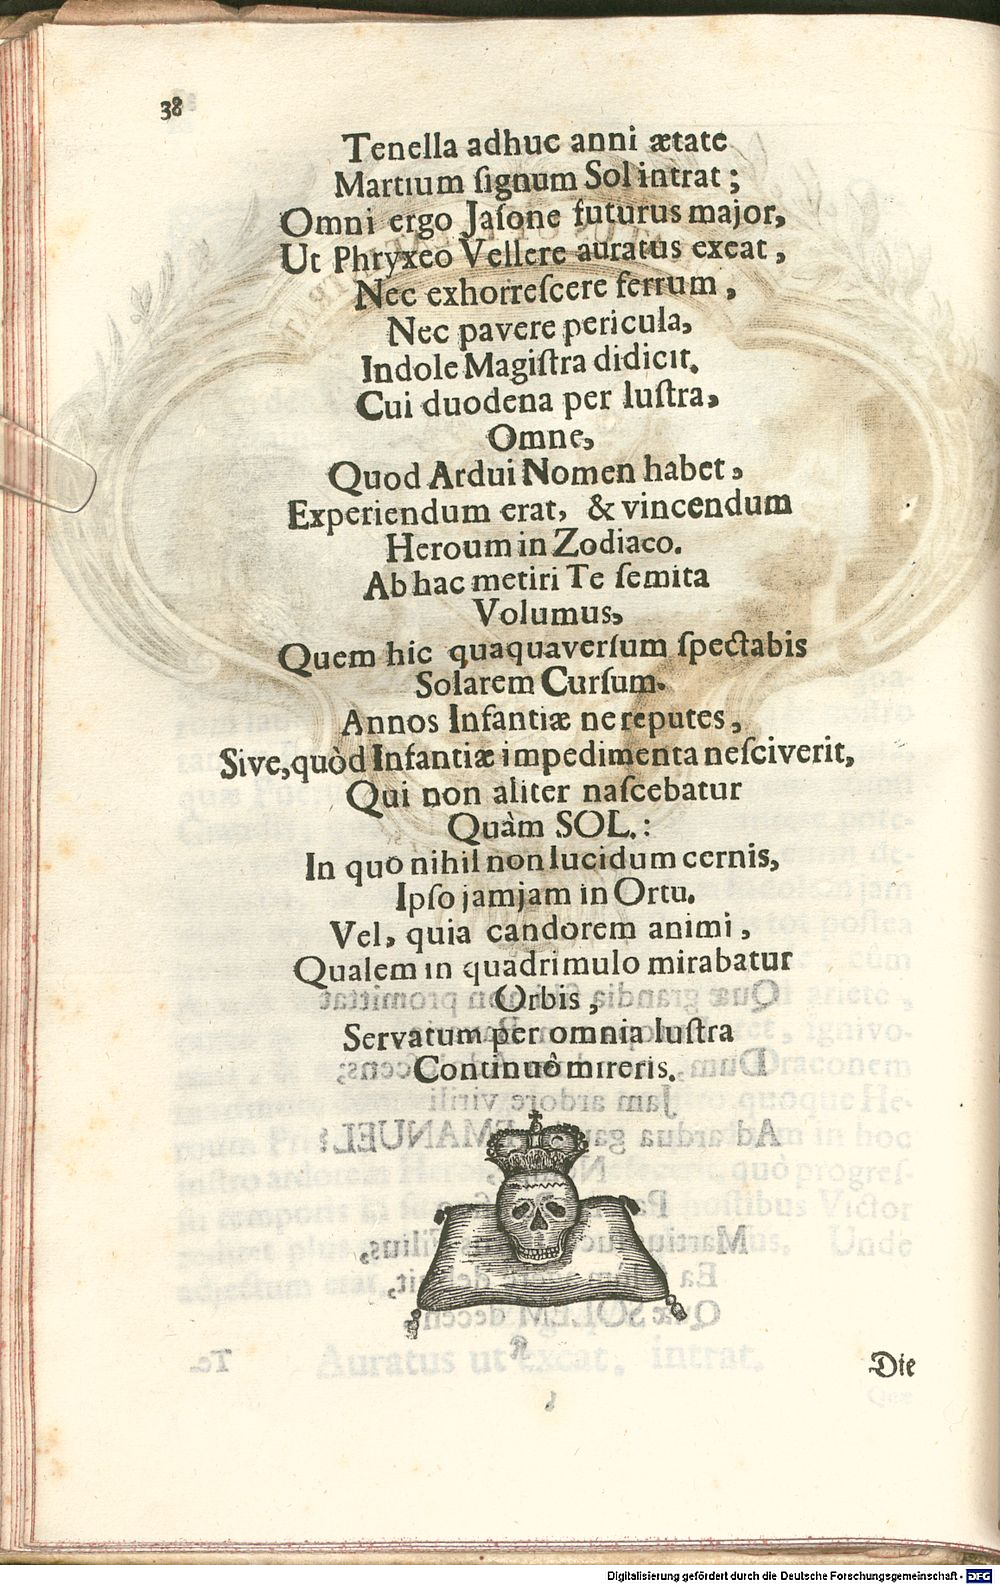 38
Tenella adhuc anni ætate
Martium ſignum Sol intrat;
Omni ergo Jaſone futurus major,
Ut Phryxeo Vellere auratus exeat,
Nec exhorreſcere ferrum,
Nec pavere pericula,
Indole Magiſtra didicit.
Cui duodena per luſtra,
Omne,
Quod Ardui Nomen habet,
Experiendum erat, & vincendum
Heroum in Zodiaco.
Ab hac metiri Te ſemita
Volumus,
Quem hic quaquaverſum ſpectabis
Solarem Curſum.
Annos Infantiæ ne reputes,
Sive, quòd Infantiæ impedimenta neſciverit,
Qui non aliter naſcebatur
Quàm SOL.:
In quo nihil non lucidum cernis,
Ipſo jamjam in Ortu.
Vel, quia candorem animi,
Qualem in quadrimulo mirabatur
Orbis,
Servatum per omnia luſtra
Continuô mireris.
Die
Digitalisierung gefördert durch die Deutsche Forschungsgemeinschaft - DFG